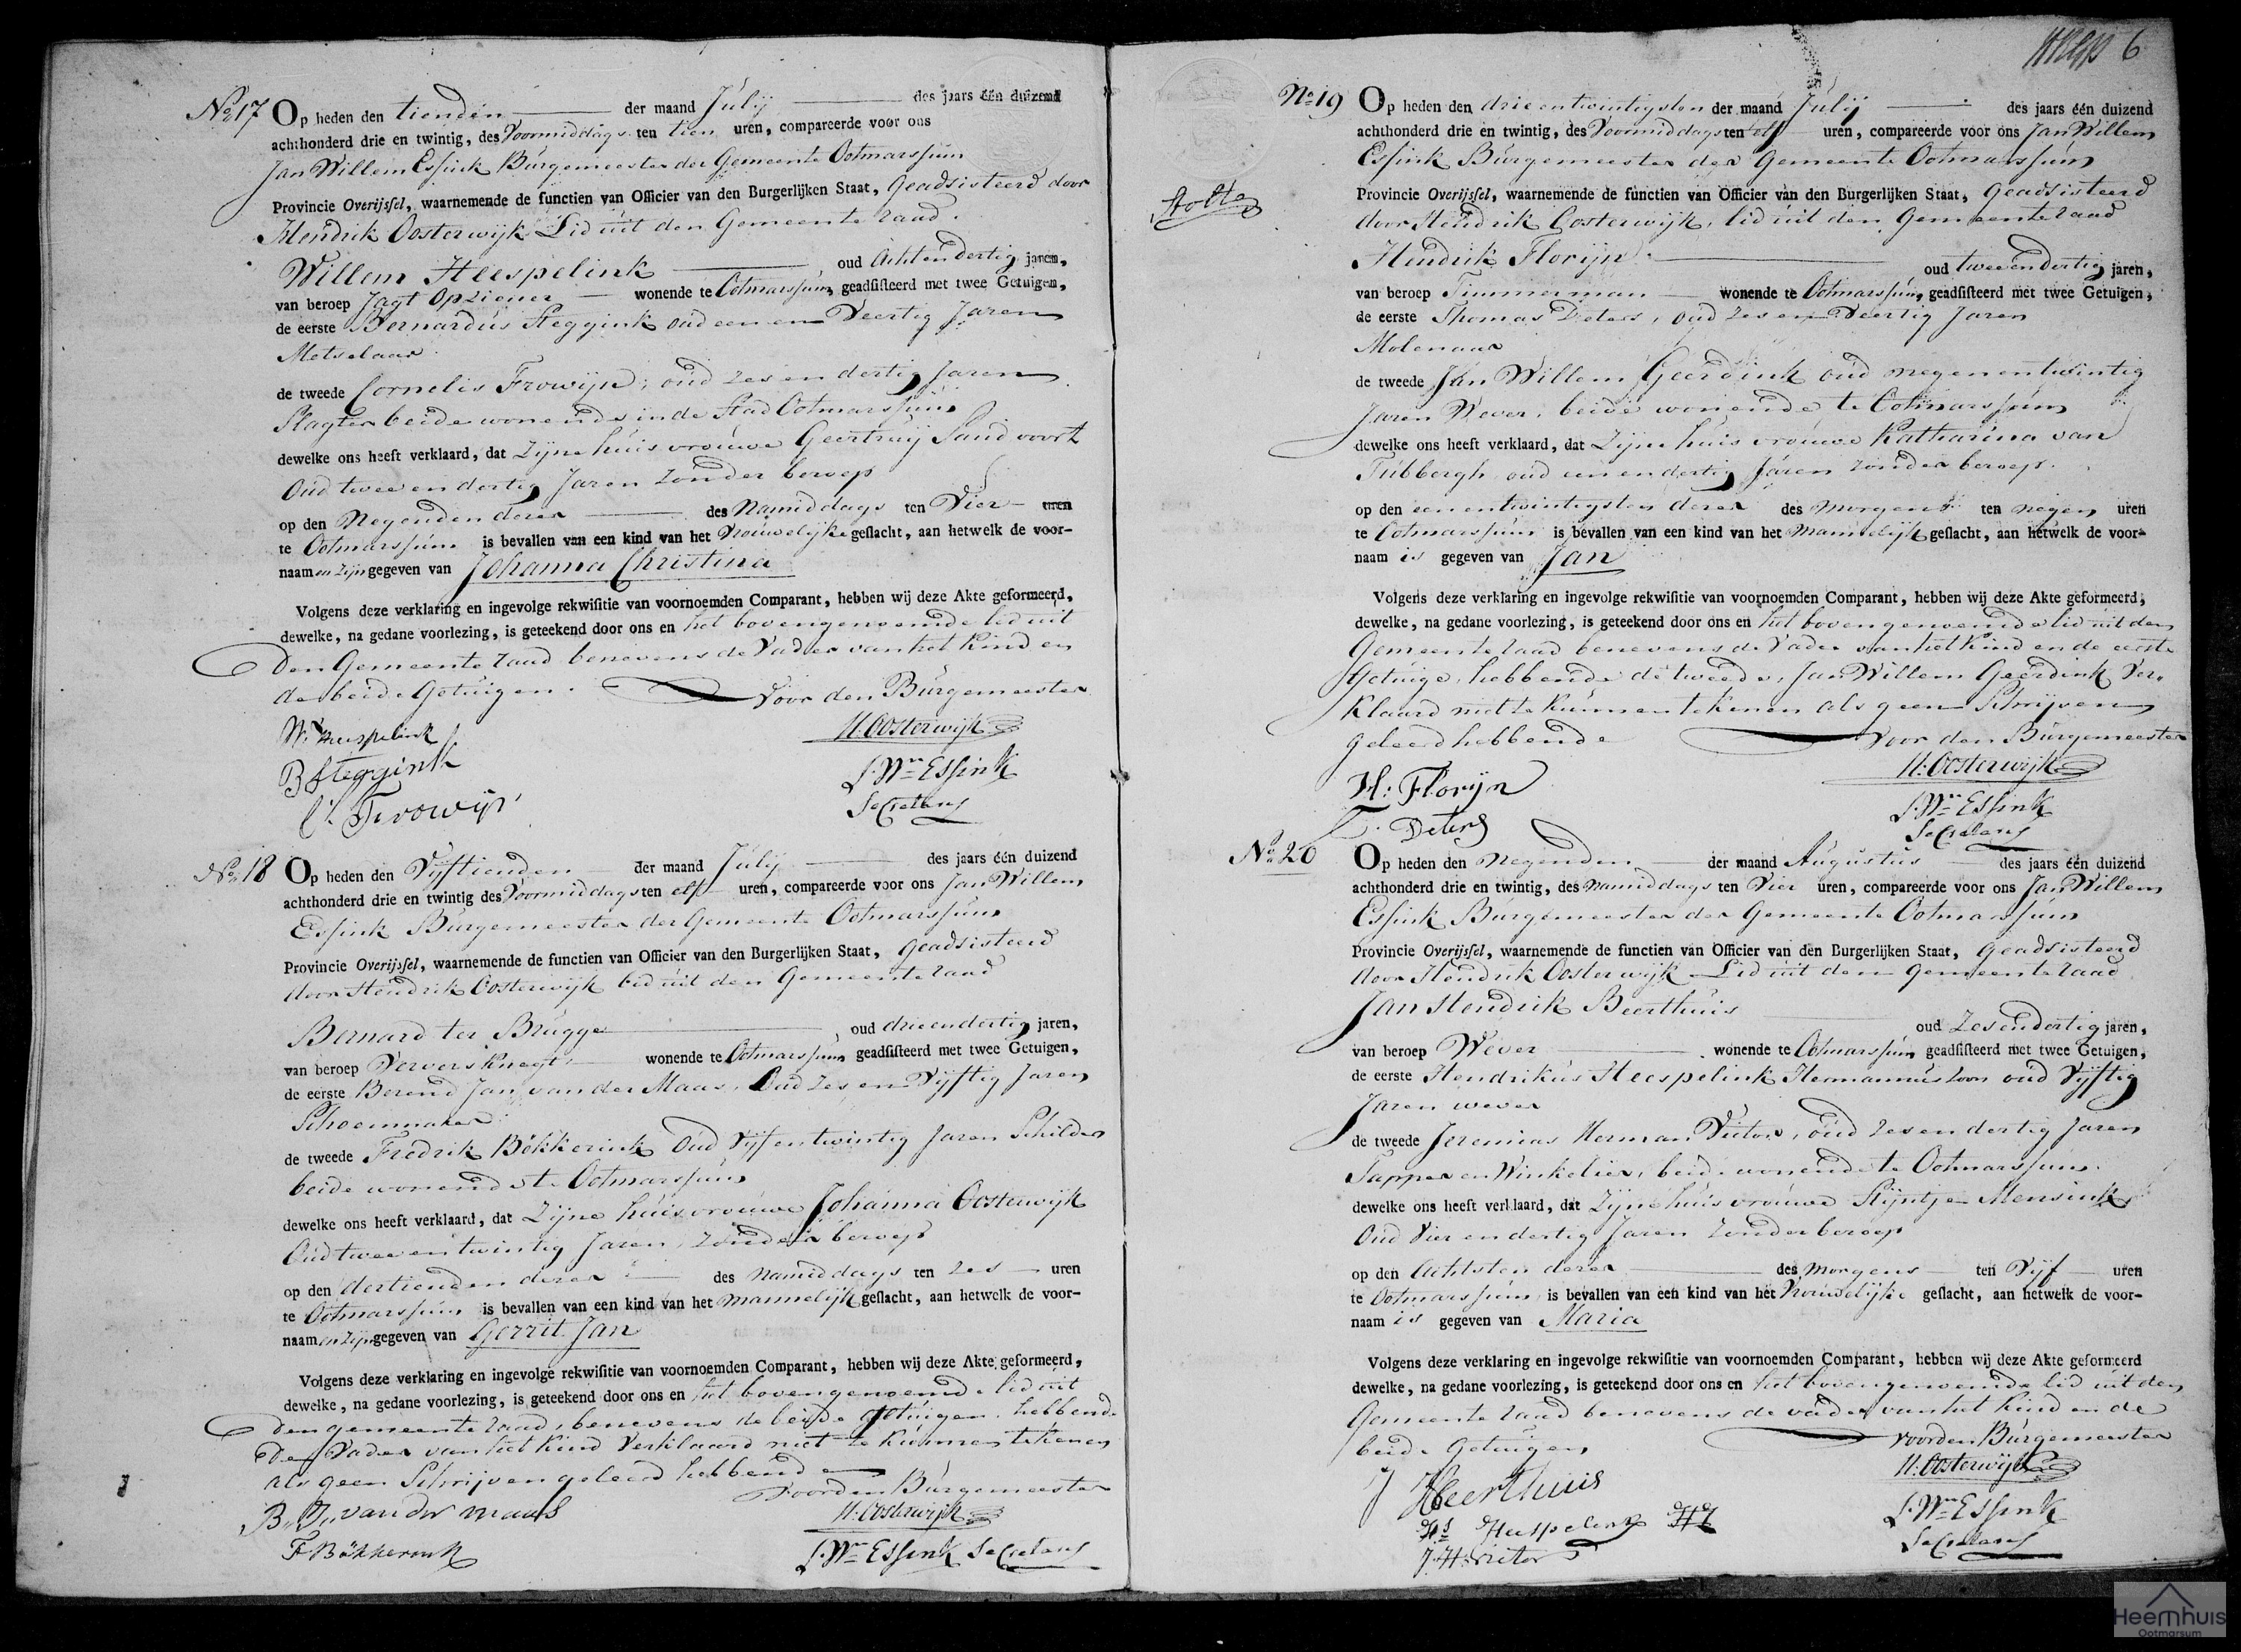 No 17 Op heden den tienden der maand Julij des jaars één duizend
achthonderd drie en twintig, des Voormiddags ten tien uren, compareerde voor ons
Jan Willem Essink Burgemeester der Gemeente Ootmarssum
Provincie Overijssel, waarnemende de functien van Officier van den Burgerlijken Staat, Geadsisteerd door
Hendrik Oosterwijk Lid uit den Gemeente raad.
Willem Heespelink oud Acht en dertig jaren,
van beroep Jagt Opziener wonende te Ootmarssum, geadsisteerd met twee Getuigen,
de eerste Bernardus Steggink oud een en Veertig Jaren
Metselaar
de tweede Cornelis Frowijn, oud zes en dertig Jaren
Slagter beide wonende in de Stad Ootmarssum
dewelke ons heeft verklaard, dat Zijne huisvrouwe Geertruij Sandvoort
Oud twee en dertig Jaren Zonder beroep
op den Negenden dezer des Namiddags ten Vier uren
te Ootmarssum is bevallen van een kind van het Vrouwelijke geslacht, aan hetwelk de voor-
naam en zijn gegeven van Johanna Christina
Volgens deze verklaring en ingevolge rekwisitie van voornoemden Comparant, hebben wij deze Akte geformeerd,
dewelke, na gedane voorlezing, is geteekend door ons en het bovengenoemde lid uit
den Gemeente raad benevens de Vader van het Kind en
de beide Getuigen.
Voor den Burgemeester
W: Heespelink
H: Oosterwijk
B Steggink
J. Wm Essink
C: Frowijn
Secretaris
No 18 Op heden den Vijftienden der maand Julij des jaars één duizend
achthonderd drie en twintig des Voormiddags ten elf uren, compareerde voor ons Jan Willem
Essink Burgemeester der Gemeente Ootmarssum
Provincie Overijssel, waarnemende de functien van Officier van den Burgerlijken Staat, geadsisteerd
door Hendrik Oosterwijk lid uit den Gemeente raad
Bernard ter Brugge oud drie en dertig jaren,
van beroep Ververs Knegt wonende te Ootmarssum geadsisteerd met twee Getuigen,
de eerste Berend Jan van der Maas, Oud zes en Vijftig Jaren
Schoenmaker
de tweede Fredrik Bökkerink Oud Vijf en twintig Jaren Schilder
beide wonende te Ootmarssum
dewelke ons heeft verklaard, dat Zijne huisvrouwe Johanna Oosterwijk
Oud twee en twintig Jaren, Zonder beroep
op den dertienden dezer des Namiddags ten zes uren
te Ootmarssum is bevallen van een kind van het mannelijk geslacht, aan hetwelk de voor-
naam en zijn gegeven van Gerrit Jan
Volgens deze verklaring en ingevolge rekwisitie van voornoemden Comparant, hebben wij deze Akte geformeerd,
dewelke, na gedane voorlezing, is geteekend door ons en het bovengenoemde lid uit
den gemeente raad, benevens de beide getuigen, hebbende
de Vader van het Kind Verklaard niet te Kunnen tekenen
als geen Schrijven geleerd hebbende
Voor den Burgemeester
B. J. van der maas
H: Oosterwijk
F Bökkerink
J. Wm Essink Secretaris
6
No 19 Op heden den drie en twintigsten der maand Julij des jaars één duizend
achthonderd drie en twintig, des Voormiddags ten elf uren, compareerde voor ons Jan Willem
Essink Burgemeester der Gemeente Ootmarssum
Provincie Overijssel, waarnemende de functien van Officier van den Burgerlijken Staat, Geadsisteerd
door Hendrik Oosterwijk, lid uit den Gemeente raad
Hendrik Florijn oud twee en dertig jaren,
van beroep Timmerman wonende te Ootmarssum, geadsisteerd met twee Getuigen,
de eerste Thomas Deters, oud zes en Veertig Jaren
Molenaar
de tweede Jan Willem Geerdink oud negen en twintig
Jaren Wever, beide wonende te Ootmarssum
dewelke ons heeft verklaard, dat Zijne huisvrouwe Katharina van
Tubbergh oud een en dertig Jaren Zonder beroep.
op den een en twintigsten dezer des morgens ten negen uren
te Ootmarssum is bevallen van een kind van het mannelijk geslacht, aan hetwelk de voor-
naam is gegeven van Jan
Volgens deze verklaring en ingevolge rekwisitie van voornoemden Comparant, hebben wij deze Akte geformeerd,
dewelke, na gedane voorlezing, is geteekend door ons en het bovengenoemde lid uit den
Gemeente raad benevens de Vader van het Kind en de eerste
Getuige, hebbende de tweede, Jan Willem Geerdink Ver,
Klaard niet te Kunnen tekenen als geen Schrijven
geleerd hebbende
Voor den Burgemeester
H: Florijn
H: Oosterwijk
T. Deters
J. Wm Essink
Secretaris
No 20 Op heden den Negenden der maand Augustus des jaars één duizend
achthonderd drie en twintig, des namiddags ten Vier uren, compareerde voor ons Jan Willem
Essink Burgemeester der Gemeente Ootmarssum
Provincie Overijssel, waarnemende de functien van Officier van den Burgerlijken Staat, Geadsisteerd
door Hendrik Oosterwijk Lid uit den Gemeente raad
Jan Hendrik Beerthuis oud Zes en dertig jaren,
van beroep Wever wonende te Ootmarssum geadsisteerd met twee Getuigen,
de eerste Hendrikus Heespelink Hermannus zoon oud Vijftig
Jaren wever
de tweede Jeremias Herman Vietor, oud zes en dertig Jaren
Tapper en Winkelier, beide wonende te Ootmarssum.
dewelke ons heeft verklaard, dat Zijne huisvrouwe Stijntje Mensink
Oud Vier en dertig Jaren Zonder beroep
op den Achtsten dezer des morgens ten Vijf uren
te Ootmarssum is bevallen van een kind van het Vrouwelijke geslacht, aan hetwelk de voor-
naam is gegeven van Maria
Volgens deze verklaring en ingevolge rekwisitie van voornoemden Comparant, hebben wij deze Akte geformeerd
dewelke, na gedane voorlezing, is geteekend door ons en het bovengenoemde lid uit den
Gemeente raad benevens de vader van het kind en de
beide Getuigen
voor den Burgemeester
J H Beerthuis
H: Oosterwijk
Hs Heespelink HZ
J. Wm Essink
J: H: Vietor
Secretaris
Heemhuis
Ootmarsum